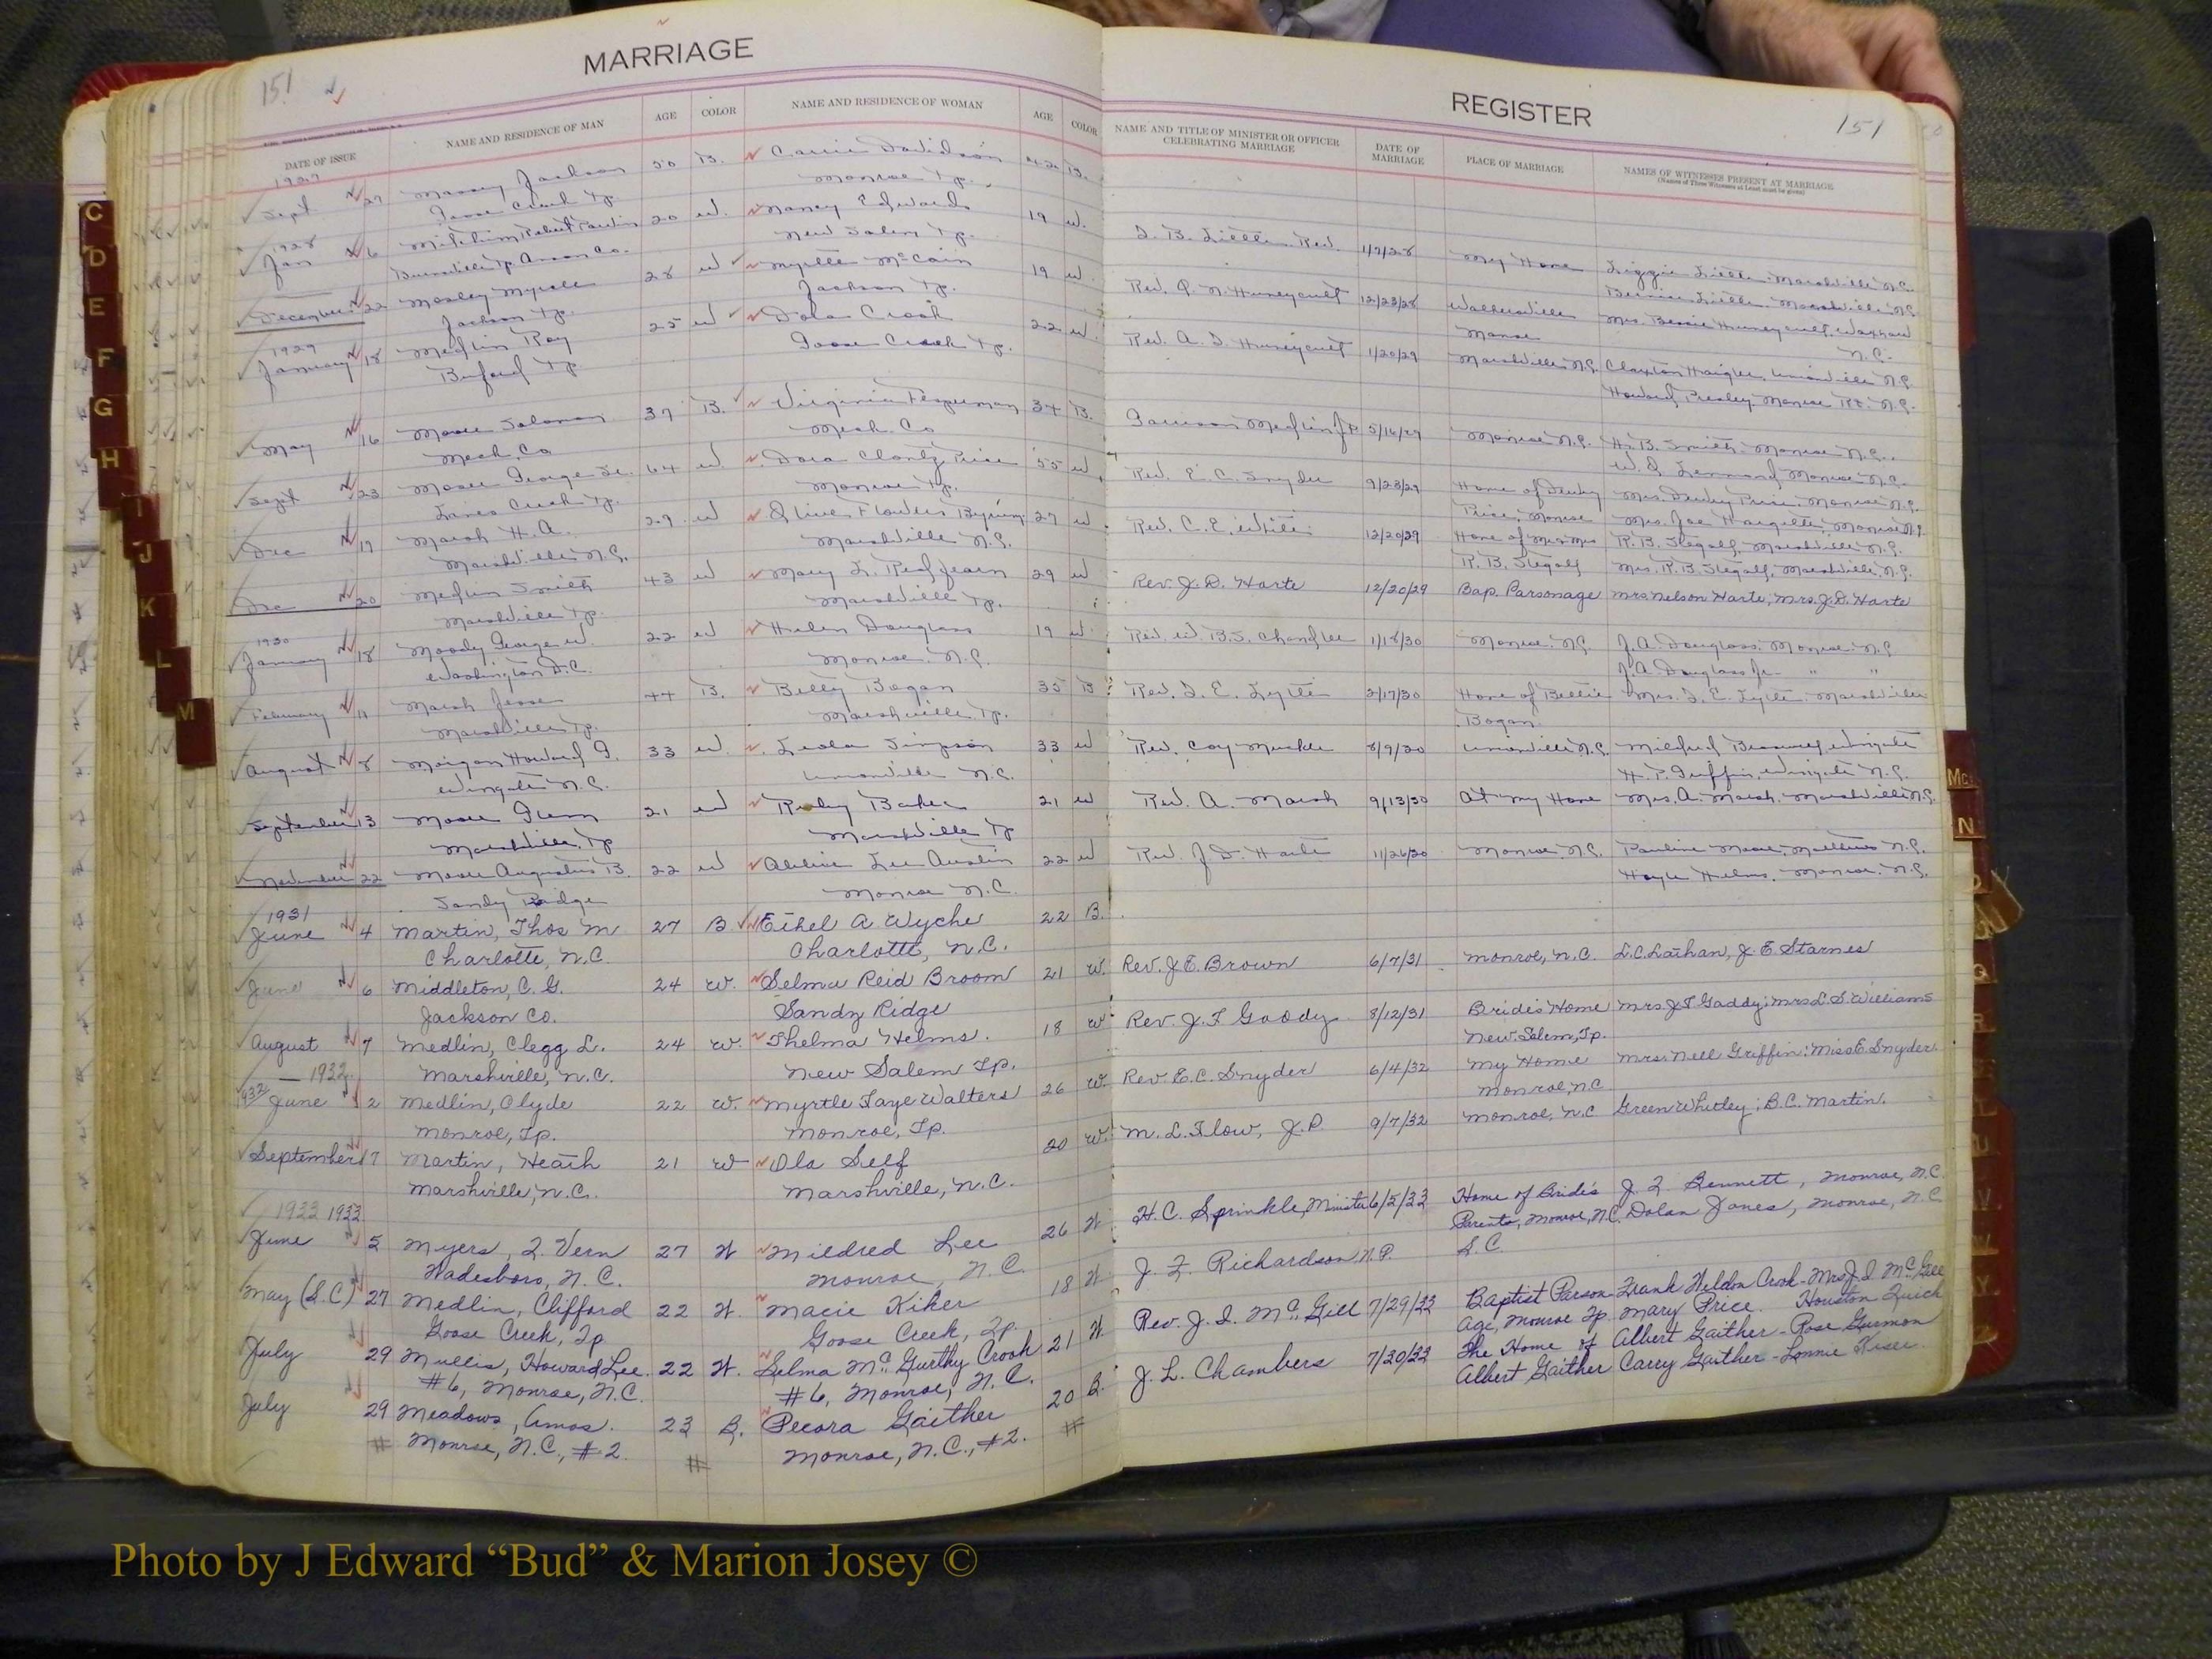 MARRIAGE
151
DATE OF ISSUE NAME AND RESIDENCE OF MAN AGE COLOR NAME AND RESIDENCE OF WOMAN AGE COLOR
1927
Sept 27 Massey Jackson 50 B. Carrie Davidson 42 B.
Goose Creek Tp. Monroe Tp.
1928
Jan 6 Mitchum Robert 20 W. Nancy Edwards 19 W.
Burnsville Tp. Anson Co. New Salem Tp.
December 22 Mosley 28 W Myrtle McCain 19 W.
Jackson Tp. Jackson Tp.
1929
January 18 Medlin Roy 25 W Crook 22 W.
Buford Tp Goose Creek Tp.
May 16 Moore Solomon 37 B. Virginia 34 B.
Meck. Co Meck. Co
Sept 23 Moore George Sr. 64 W Dora Clontz Price 55 W
Lanes Creek Tp. Monroe Tp.
Dec 19 Marsh H. A. 29 W Olive Flowers 27 W
Marshville N.C. Marshville N.C.
Dec 20 Medlin Smith 43 W Mary L. Redfearn 29 W
Marshville Tp. Marshville Tp.
1930
January 18 Moody George W. 22 W Helen Douglass 19 W
Washington D.C. Monroe, N.C.
February 11 Marsh Jesse 44 B. Betty Bogan 35 B
Marshville Tp. Marshville Tp.
August 8 Morgan Howard 33 W. Leola Simpson 33 W
Wingate N.C. Unionville N.C.
September 13 Moore Glenn 21 W Ruby Baker 21 W
Marshville Tp Marshville Tp
November 22 Moore Augustus B. 22 W Lee Austin 22 W
Sandy Ridge Monroe N.C.
1931
June 4 Martin, Thos M 27 B Ethel A. Wyche 22 B.
Charlotte, N.C. Charlotte, N.C.
June 6 Middleton, C. G. 24 W. Selma Reid Broom 21 W.
Jackson Co. Sandy Ridge
August 7 Medlin, Clegg L. 24 W. Thelma Helms. 18 W
Marshville, N.C. New Salem Tp.
1932
1932 June 2 Medlin, Clyde 22 W. Myrtle Faye Walters 26 W.
Monroe, Tp. Monroe, Tp.
September 17 Martin, Heath 21 W Ola Self 20 W.
Marshville, N.C. Marshville, N.C.
1933 1933
June 5 Myers, Z. Vern 27 W Mildred Lee 26 W.
Wadesboro, N.C. Monroe, N.C.
May (S.C.) 27 Medlin, Clifford 22 W. Macie Kiker 18 W.
Goose Creek, Tp. Goose Creek, Tp.
July 29 Mullis, Howard Lee. 22 W. Selma McGurthy Crook 21 W
#6, Monroe, N.C. #6, Monroe, N.C.
July 29 Meadows, Amos. 23 B. Pecora Gaither 20 B.
# Monroe, N.C., #2. # Monroe, N.C., #2. #
REGISTER
151
NAME AND TITLE OF MINISTER OR OFFICER CELEBRATING MARRIAGE DATE OF MARRIAGE PLACE OF MARRIAGE NAMES OF WITNESSES PRESENT AT MARRIAGE
(Names of Three Witnesses at Least must be given)
Rev. 1/7/28 My Home Marshville N.C.
Marshville N.C.
Rev. Q. N. Huneycutt 12/23/28 Walkersville Mrs. Bessie Huneycutt, Waxhaw
Manse N.C.
Rev. A. Huneycutt 1/20/29 Marshville N.C. Unionville N.C.
Howard Presley Monroe Rt. N.C.
Medlin JP 5/16/29 Monroe N.C. H. B. Smith Monroe N.C.
Monroe N.C.
Rev. E. C. Snyder 9/23/29 Home of Dewey Mrs. Dewey Price, Monroe N.C.
Price, Monroe Mrs. Joe Monroe N.C.
Rev. C. E. White 12/20/29 Home of Mr & Mrs R. B. Stegall, Marshville N.C.
R. B. Stegall Mrs. R. B. Stegall, Marshville, N.C.
Rev. J. D. Harte 12/20/29 Bap. Parsonage Mrs Nelson Harte, Mrs. J. D. Harte
Rev. W. B. S. Chandler 1/18/30 Monroe N.C. J. A. Douglass, Monroe N.C.
J. A. Douglass Jr. " "
Rev. Lytle 2/17/30 Home of Bettie Mrs. Lytle Marshville
Bogan.
Rev. Coy Muckle 8/9/30 Unionville N.C. Mildred Wingate
H. P. Griffin, Wingate N.C.
Rev. A. Marsh 9/13/30 At my Home Mrs. A. Marsh, Marshville N.C.
Rev. J. D. Harte 11/26/30 Monroe, N.C. Pauline Moore, Matthews N.C.
Helms, Monroe, N.C.
Rev. J. E. Brown 6/7/31 Monroe, N.C. L. C. Lathan, J. E. Starnes
Rev. J. F. Gaddy 8/12/31 Bride's Home Mrs J F Gaddy; Mrs L. S. Williams
New Salem, Tp.
Rev. E. C. Snyder 6/4/32 My Home Mrs. Nell Griffin: Miss E. Snyder
Monroe, N.C.
M. L. Flow, J.P. 9/7/32 Monroe, N.C Green Whitley; B. C. Martin.
H. C. Sprinkle, Minister 6/5/33 Home of Bride's J. Z. Bennett, Monroe, N.C.
Parents, Monroe, N.C. Dolan Jones, Monroe, N.C
J. Z. Richardson, N.P. S.C.
Rev. J. I. McGill 7/29/33 Baptist Parson- Frank Weldon Crook - Mrs J. I. McGill
age, Monroe Tp. Mary Price. Houston Quick
J. L. Chambers 7/30/33 The Home of Albert Gaither - Rose Gurmon
Albert Gaither Carry Gaither - Lonnie Kiser
C
D
E
F
G
H
I
J
K
L
M
Mc
N
Q
R
U
V
W
Y
Photo by J Edward “Bud” & Marion Josey ©